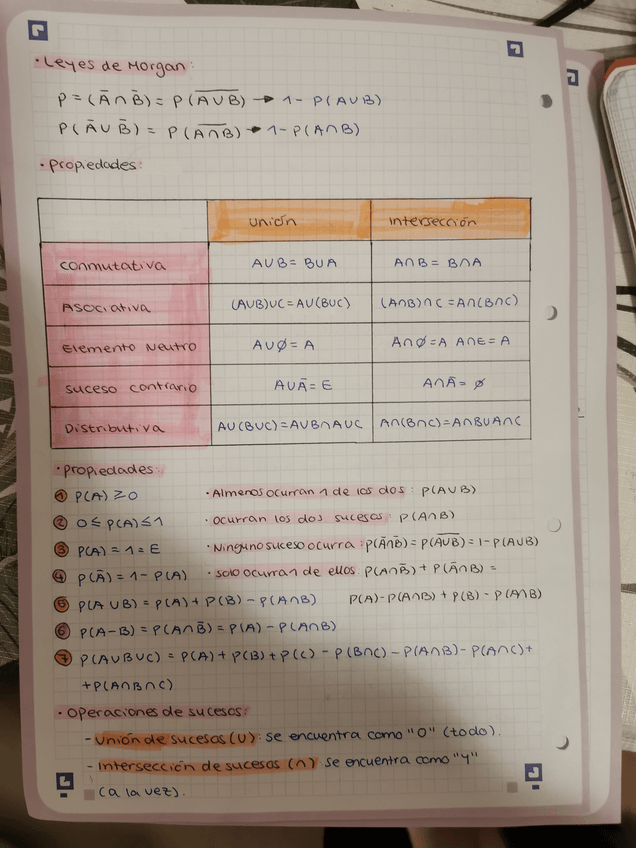 · Leyes de Morgan:
P=(Ā∩B̄) = P(A̅∪̅B̅) → 1 - P(A∪B)
P(Ā∪B̄) = P(A̅∩̅B̅) → 1 - P(A∩B)
· Propiedades:
Unión Intersección
Conmutativa A∪B = B∪A A∩B = B∩A
Asociativa (A∪B)∪C=A∪(B∪C) (A∩B)∩C=A∩(B∩C)
Elemento Neutro A∪Ø = A A∩Ø=A A∩E=A
Suceso contrario A∪Ā = E A∩Ā = Ø
Distributiva A∪(B∪C)=A∪B∩A∪C A∩(B∩C)=A∩B∪A∩C
· Propiedades:
1 P(A) ≥0 · Almenos ocurran 1 de los dos: P(A∪B)
2 0≤P(A)≤1 · Ocurran los dos sucesos: P(A∩B)
3 P(A) = 1 = E · Ninguno suceso ocurra: P(Ā∩B̄)=P(A̅∪̅B̅)=1-P(A∪B)
4 P(Ā) = 1 - P(A) · Solo ocurra 1 de ellos: P(A∩B̄) + P(Ā∩B) =
5 P(A∪B) = P(A) + P(B) - P(A∩B) P(A)-P(A∩B) + P(B) - P(A∩B)
6 P(A-B) = P(A∩B̄) = P(A) - P(A∩B)
7 P(A∪B∪C) = P(A) + P(B) + P(C) - P(B∩C) - P(A∩B) - P(A∩C) +
+P(A∩B∩C)
· Operaciones de sucesos:
- Unión de sucesos (∪): se encuentra como "O" (todo).
- Intersección de sucesos (∩) se encuentra como "Y"
(a la vez).